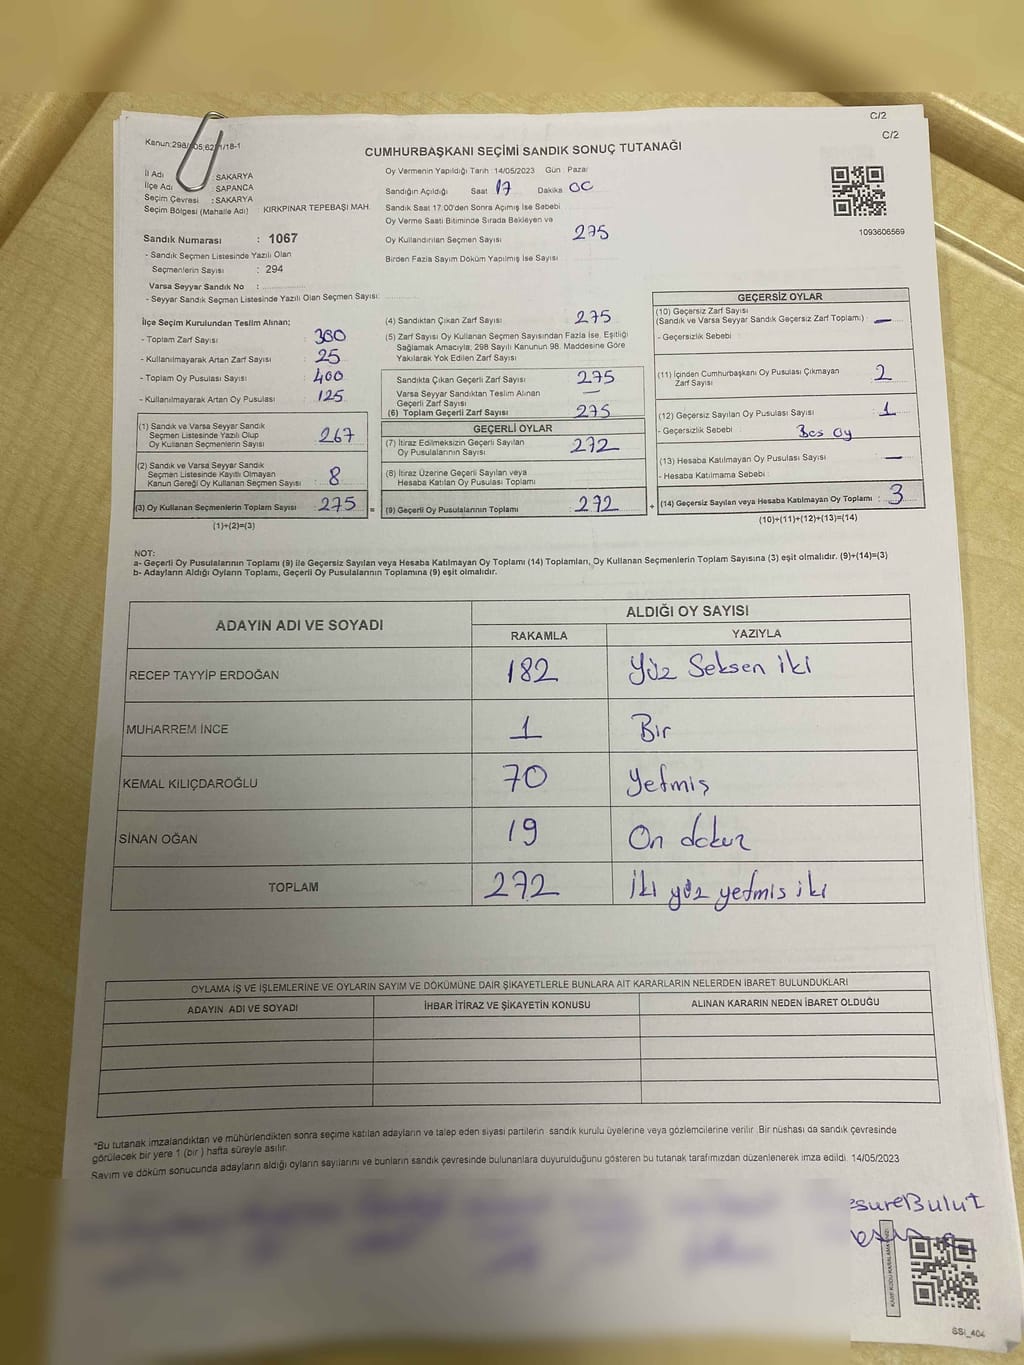 C/2
C/2
Kanun:298/ 05,62 1/18-1
CUMHURBAŞKANI SEÇİMİ SANDIK SONUÇ TUTANAĞI
İl Adı : SAKARYA
İlçe Adı : SAPANCA
Seçim Çevresi : SAKARYA
Seçim Bölgesi (Mahalle Adı) : KIRKPINAR TEPEBAŞI MAH.
Sandık Numarası : 1067
- Sandık Seçmen Listesinde Yazılı Olan
Seçmenlerin Sayısı : 294
Varsa Seyyar Sandık No :
- Seyyar Sandık Seçmen Listesinde Yazılı Olan Seçmen Sayısı:
Oy Vermenin Yapıldığı Tarih : 14/05/2023 Gün : Pazar
Sandığın Açıldığı Saat 17 Dakika 00
Sandık Saat 17:00'den Sonra Açımış İse Sebebi
Oy Verme Saati Bitiminde Sırada Bekleyen ve
Oy Kullandırılan Seçmen Sayısı 275
Birden Fazla Sayım Döküm Yapılmış İse Sayısı
1093606569
İlçe Seçim Kurulundan Teslim Alınan;
- Toplam Zarf Sayısı : 300
- Kullanılmayarak Artan Zarf Sayısı : 25
- Toplam Oy Pusulası Sayısı : 400
- Kullanılmayarak Artan Oy Pusulası : 125
(1) Sandık ve Varsa Seyyar Sandık
Seçmen Listesinde Yazılı Olup
Oy Kullanan Seçmenlerin Sayısı : 267
(2) Sandık ve Varsa Seyyar Sandık
Seçmen Listesinde Kayıtlı Olmayan
Kanun Gereği Oy Kullanan Seçmen Sayısı : 8
(3) Oy Kullanan Seçmenlerin Toplam Sayısı : 275 =
(1)+(2)=(3)
(4) Sandıktan Çıkan Zarf Sayısı : 275
(5) Zarf Sayısı Oy Kullanan Seçmen Sayısından Fazla İse, Eşitliği
Sağlamak Amacıyla, 298 Sayılı Kanunun 98. Maddesine Göre
Yakılarak Yok Edilen Zarf Sayısı
Sandıkta Çıkan Geçerli Zarf Sayısı : 275
Varsa Seyyar Sandıktan Teslim Alınan
Geçerli Zarf Sayısı —
(6) Toplam Geçerli Zarf Sayısı : 275
GEÇERLİ OYLAR
(7) İtiraz Edilmeksizin Geçerli Sayılan
Oy Pusulalarının Sayısı : 272
(8) İtiraz Üzerine Geçerli Sayılan veya
Hesaba Katılan Oy Pusulası Toplamı
(9) Geçerli Oy Pusulalarının Toplamı : 272 +
GEÇERSİZ OYLAR
(10) Geçersiz Zarf Sayısı
(Sandık ve Varsa Seyyar Sandık Geçersiz Zarf Toplamı) : —
- Geçersizlik Sebebi :
(11) İçinden Cumhurbaşkanı Oy Pusulası Çıkmayan
Zarf Sayısı : 2
(12) Geçersiz Sayılan Oy Pusulası Sayısı : 1
- Geçersizlik Sebebi : Bos oy
(13) Hesaba Katılmayan Oy Pusulası Sayısı : —
- Hesaba Katılmama Sebebi :
(14) Geçersiz Sayılan veya Hesaba Katılmayan Oy Toplamı : 3
(10)+(11)+(12)+(13)=(14)
NOT:
a- Geçerli Oy Pusulalarının Toplamı (9) ile Geçersiz Sayılan veya Hesaba Katılmayan Oy Toplamı (14) Toplamları, Oy Kullanan Seçmenlerin Toplam Sayısına (3) eşit olmalıdır. (9)+(14)=(3)
b- Adayların Aldığı Oyların Toplamı, Geçerli Oy Pusulalarının Toplamına (9) eşit olmalıdır.
ADAYIN ADI VE SOYADI ALDIĞI OY SAYISI
RAKAMLA YAZIYLA
RECEP TAYYİP ERDOĞAN 182 Yüz Seksen iki
MUHARREM İNCE 1 Bir
KEMAL KILIÇDAROĞLU 70 Yetmiş
SİNAN OĞAN 19 On dokuz
TOPLAM 272 İki yüz yetmis iki
OYLAMA İŞ VE İŞLEMLERİNE VE OYLARIN SAYIM VE DÖKÜMÜNE DAİR ŞİKAYETLERLE BUNLARA AİT KARARLARIN NELERDEN İBARET BULUNDUKLARI
ADAYIN ADI VE SOYADI İHBAR İTİRAZ VE ŞİKAYETİN KONUSU ALINAN KARARIN NEDEN İBARET OLDUĞU
*Bu tutanak imzalandıktan ve mühürlendikten sonra seçime katılan adayların ve talep eden siyasi partilerin sandık kurulu üyelerine veya gözlemcilerine verilir. Bir nüshası da sandık çevresinde
görülecek bir yere 1 (bir ) hafta süreyle asılır.
Sayım ve döküm sonucunda adayların aldığı oyların sayılarını ve bunların sandık çevresinde bulunanlara duyurulduğunu gösteren bu tutanak tarafımızdan düzenlenerek imza edildi. 14/05/2023
esure Bulut
SSI_404